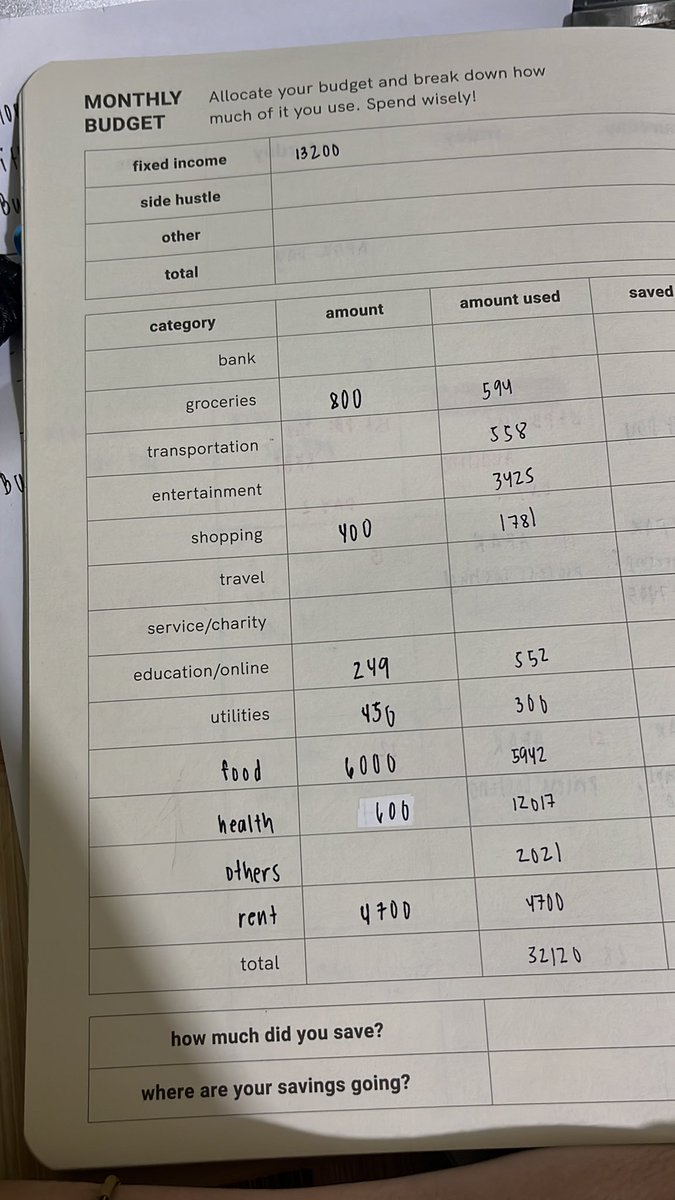 MONTHLY BUDGET Allocate your budget and break down how much of it you use. Spend wisely!
fixed income 13200
side hustle
other
total
category amount amount used saved
bank
groceries 800 594
transportation 558
entertainment 3425
shopping 400 1781
travel
service/charity
education/online 249 552
utilities 456 306
food 6000 5942
health 600 12017
others 2021
rent 4700 4700
total 32120
how much did you save?
where are your savings going?